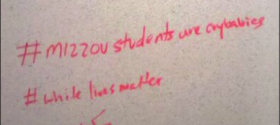 #mizzou students are crybabies
# white lives matter